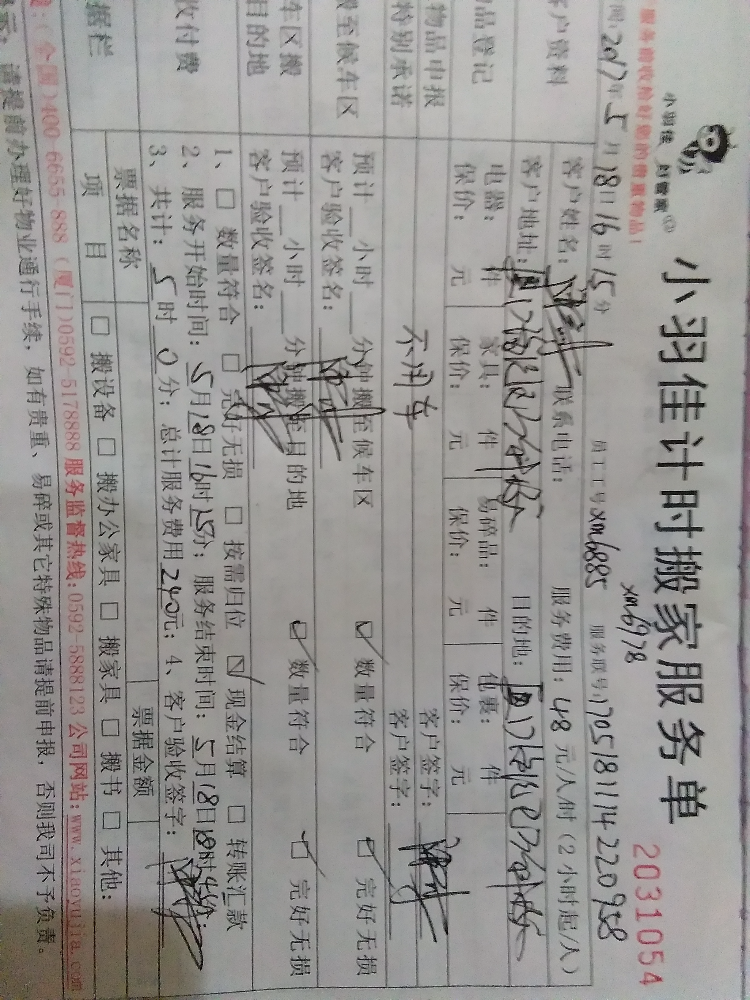 小羽佳 好管家
小羽佳计时搬家服务单
2031054
服务前收拾好您的贵重物品!
员工工号xm6885 服务联号:170518111422 0958
xm6978
间:2017年5月18日16时15分
客户资料
客户姓名: 联系电话: 服务费用:48元/人/时(2小时起/人)
客户地址: 目的地:
品登记
电器: 件 家具: 件 易碎品: 件 包裹: 件
保价: 元 保价: 元 保价: 元 保价: 元
物品申报 客户签字:
特别承诺 不用车 客户签字:
搬至候车区 预计__小时__分钟搬至候车区 数量符合 完好无损
客户验收签名:
车区搬
目的地 预计__小时__分钟搬至目的地 数量符合 完好无损
客户验收签名:
收付费
1、□ 数量符合 □ 完好无损 □ 按需归位 ☑ 现金结算 □ 转账汇款
2、服务开始时间:5月18日16时25分; 服务结束时间:5月18日18时分;
3、共计:5时0分; 总计服务费用240元; 4、客户验收签字:
据栏
票据名称 票据金额
项 目 □ 搬设备 □ 搬办公家具 □ 搬家具 □ 搬书 □ 其他:
线:(全国)400-6655-888 (厦门)0592-5178888 服务监督热线:0592-5888123 公司网站:www.xiaoyujia.com
示: 请提前办理好物业通行手续,如有贵重、易碎或其它特殊物品请提前申报,否则我司不予负责。